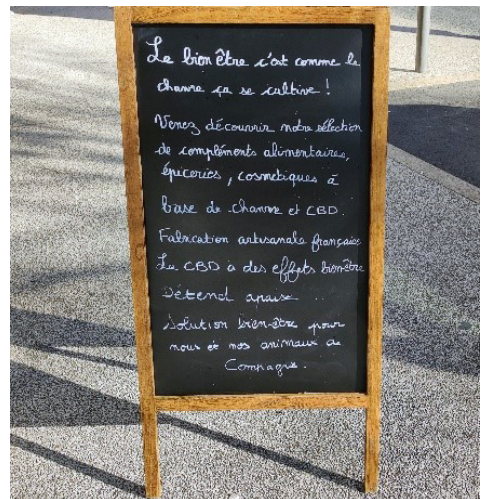 Le bien être c'est comme le
chanvre ça se cultive !
Venez découvrir notre sélection
de compléments alimentaires,
épiceries, cosmétiques à
base de chanvre et CBD.
Fabrication artisanale française
Le CBD à des effets bien-être
Détend apaise ..
Solution bien-être pour
nous et nos animaux de
Compagnie.